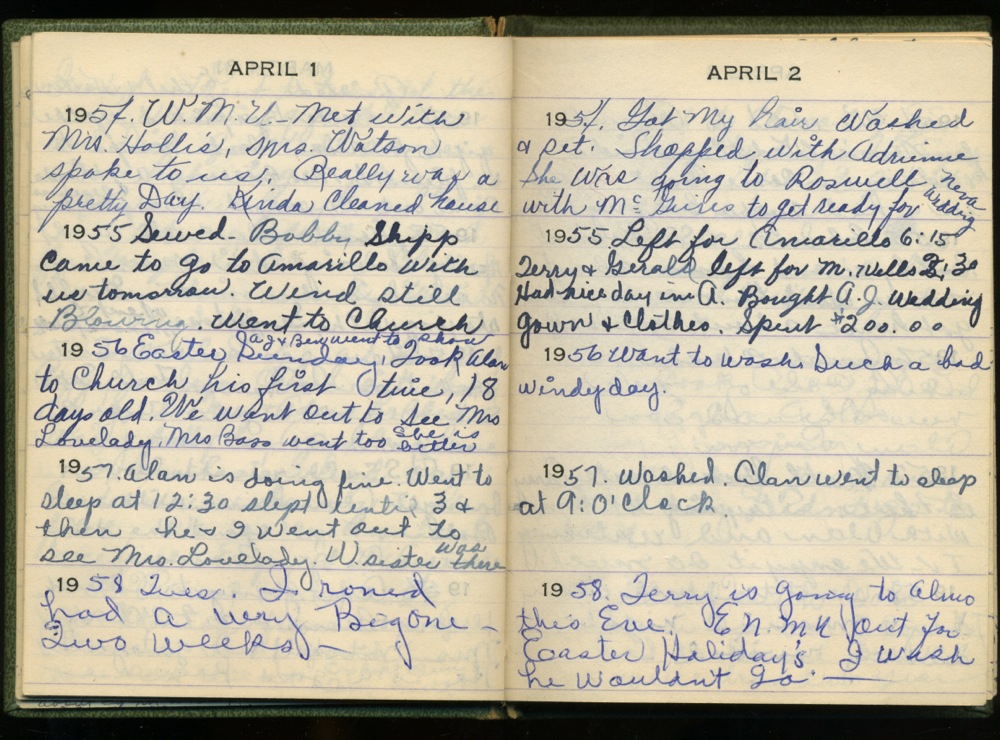 APRIL 1
1954. W.M.U. - Met with
Mrs. Hollis, Mrs. Watson
spoke to us. Really was a
pretty Day. Kinda Cleaned house
1955 Sewed - Bobby Shipp
came to go to Amarillo with
us tomorrow. Wind still
Blowing. Went to Church
A.J & Ben went to show
1956 Easter Sunday, Took Alan
to Church his first time, 18
days old. We went out to see Mrs
Lovelady. Mrs Bass went too She is
better
1957. Alan is doing fine. Went to
sleep at 12:30 slept until 3 &
then he & I went out to
see Mrs. Lovelady. W. sister was
there
1958 Tues. I roned
had a very Big one -
Two weeks -
APRIL 2
1954. Got My hair Washed
& set. Shopped with Adrienne
She was going to Roswell
with Mc to get ready for Neva
Wedding
1955 Left for Amarillo 6:15
Terry & Gerald left for M. Wells 8:30
Had nice day in A. Bought A.J. Wedding
gown & Clothes. Spent $200.00
1956 Want to wash. Such a bad
windy day.
1957. Washed. Alan went to sleep
at 9:0'Clock
1958. Terry is going to Almo
this Eve. E.N.M.U out for
Easter Holiday's. I wish
he wouldnt Go. -